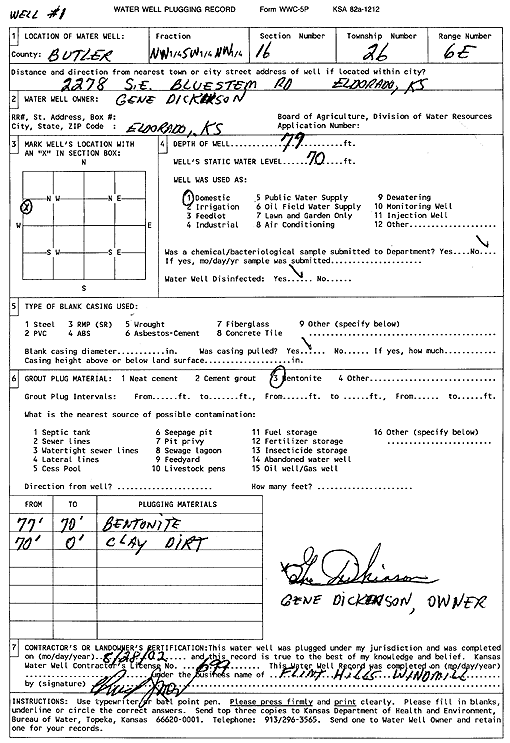 WELL #1
WATER WELL PLUGGING RECORD Form WWC-5P KSA 82a-1212
1 LOCATION OF WATER WELL: Fraction Section Number Township Number Range Number
County: BUTLER NW1/4 SW1/4 NW1/4 16 26 6E
Distance and direction from nearest town or city street address of well if located within city?
2278 S.E. BLUESTEM RD ELDORADO, KS
2 WATER WELL OWNER: GENE DICKERSON
RR#, St. Address, Box #: Board of Agriculture, Division of Water Resources
City, State, ZIP Code : ELDORADO, KS Application Number:
3 MARK WELL'S LOCATION WITH AN "X" IN SECTION BOX:
N
N W N E
X
W E
S W S E
S
4 DEPTH OF WELL.....77.....ft.
WELL'S STATIC WATER LEVEL.....70.....ft.
WELL WAS USED AS:
1 Domestic 5 Public Water Supply 9 Dewatering
2 Irrigation 6 Oil Field Water Supply 10 Monitoring Well
3 Feedlot 7 Lawn and Garden Only 11 Injection Well
4 Industrial 8 Air Conditioning 12 Other............
Was a chemical/bacteriological sample submitted to Department? Yes....No....✓
If yes, mo/day/yr sample was submitted...................
Water Well Disinfected: Yes..✓.. No......
5 TYPE OF BLANK CASING USED:
1 Steel 3 RMP (SR) 5 Wrought 7 Fiberglass 9 Other (specify below)
2 PVC 4 ABS 6 Asbestos-Cement 8 Concrete Tile ........................
Blank casing diameter..........in. Was casing pulled? Yes..✓.. No...... If yes, how much...........
Casing height above or below land surface...................in.
6 GROUT PLUG MATERIAL: 1 Neat cement 2 Cement grout 3 Bentonite 4 Other.....................
Grout Plug Intervals: From.....ft. to ......ft., From.....ft. to .....ft., From...... to......ft.
What is the nearest source of possible contamination:
1 Septic tank 6 Seepage pit 11 Fuel storage 16 Other (specify below)
2 Sewer lines 7 Pit privy 12 Fertilizer storage .....................
3 Watertight sewer lines 8 Sewage lagoon 13 Insecticide storage
4 Lateral lines 9 Feedyard 14 Abandoned water well
5 Cess Pool 10 Livestock pens 15 Oil well/Gas well
Direction from well? ................... How many feet? ...................
FROM TO PLUGGING MATERIALS
77' 70' BENTONITE
70' 0' CLAY DIRT
GENE DICKERSON, OWNER
7 CONTRACTOR'S OR LANDOWNER'S CERTIFICATION:This water well was plugged under my jurisdiction and was completed
on (mo/day/year) 8/28/02 and this record is true to the best of my knowledge and belief. Kansas
Water Well Contractor's License No. 699 This Water Well Record was completed on (mo/day/year)
under the business name of FLINT HILLS WINDMILL
by (signature)
INSTRUCTIONS: Use typewriter or ball point pen. Please press firmly and print clearly. Please fill in blanks,
underline or circle the correct answers. Send top three copies to Kansas Department of Health and Environment,
Bureau of Water, Topeka, Kansas 66620-0001. Telephone: 913/296-3565. Send one to Water Well Owner and retain
one for your records.